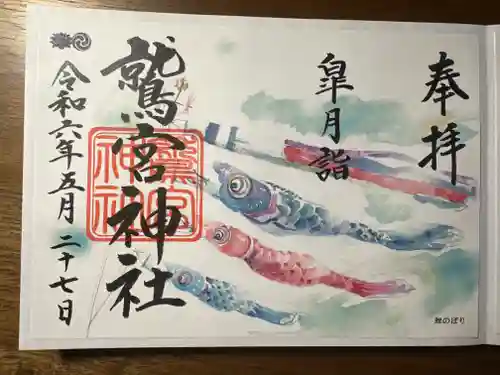 奉拝
皐月詣
鷲宮神社
鷲宮神社
令和六年五月二十七日
鯉のぼり